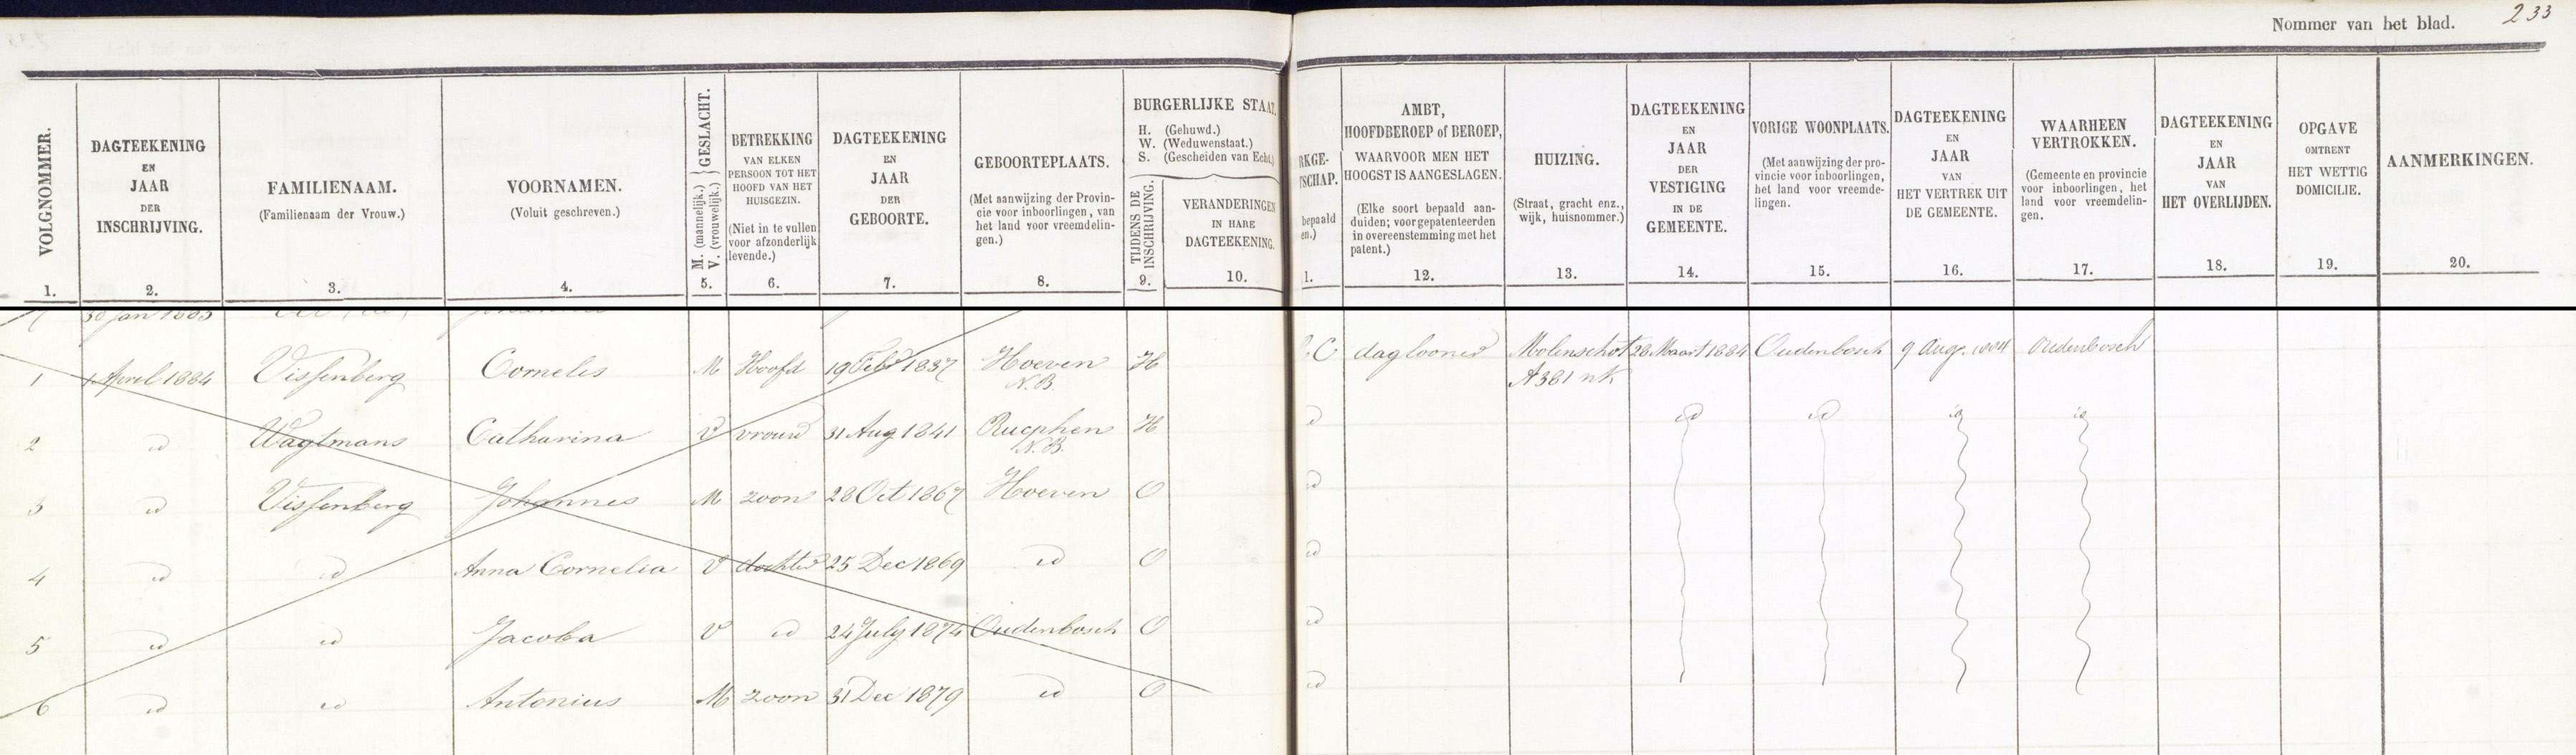 Nommer van het blad. 233
VOLGNOMMER.
1.
DAGTEEKENING
EN
JAAR
DER
INSCHRIJVING.
2.
FAMILIENAAM.
(Familienaam der Vrouw.)
3.
VOORNAMEN.
(Voluit geschreven.)
4.
GESLACHT.
M. (mannelijk.)
V. (vrouwelijk.)
5.
BETREKKING
VAN ELKEN
PERSOON TOT HET
HOOFD VAN HET
HUISGEZIN.
(Niet in te vullen
voor afzonderlijk
levende.)
6.
DAGTEEKENING
EN
JAAR
DER
GEBOORTE.
7.
GEBOORTEPLAATS.
(Met aanwijzing der Provin-
cie voor inboorlingen, van
het land voor vreemdelin-
gen.)
8.
BURGERLIJKE STAAT.
H. (Gehuwd.)
W. (Weduwenstaat.)
S. (Gescheiden van Echt.)
TIJDENS DE
INSCHRIJVING.
9.
VERANDERINGEN
IN HARE
DAGTEEKENING.
10.
RKGE-
TSCHAP.
bepaald
en.)
1.
AMBT,
HOOFDBEROEP of BEROEP,
WAARVOOR MEN HET
HOOGST IS AANGESLAGEN.
(Elke soort bepaald aan-
duiden; voor gepatenteerden
in overeenstemming met het
patent.)
12.
HUIZING.
(Straat, gracht enz.,
wijk, huisnommer.)
13.
DAGTEEKENING
EN
JAAR
DER
VESTIGING
IN DE
GEMEENTE.
14.
VORIGE WOONPLAATS.
(Met aanwijzing der pro-
vincie voor inboorlingen,
het land voor vreemde-
lingen.
15.
DAGTEEKENING
EN
JAAR
VAN
HET VERTREK UIT
DE GEMEENTE.
16.
WAARHEEN
VERTROKKEN.
(Gemeente en provincie
voor inboorlingen, het
land voor vreemdelin-
gen.
17.
DAGTEEKENING
EN
JAAR
VAN
HET OVERLIJDEN.
18.
OPGAVE
OMTRENT
HET WETTIG
DOMICILIE.
19.
AANMERKINGEN.
20.
1 1 April 1884 Vissenberg Cornelis M Hoofd 19 Feb 1837 Hoeven N.B. H C daglooner Molenschot A 381 nk 28 Maart 1884 Oudenbosch 9 Aug. 1884 Oudenbosch
2 id Wagtmans Catharina V vrouw 31 Aug 1841 Rucphen N.B. H id id id id id
3 id Vissenberg Johannes M zoon 28 Oct 1867 Hoeven O id
4 id id Anna Cornelia V dochter 25 Dec 1869 id O id
5 id id Jacoba V id 24 July 1874 Oudenbosch O id
6 id id Antonius M zoon 31 Dec 1879 id O id